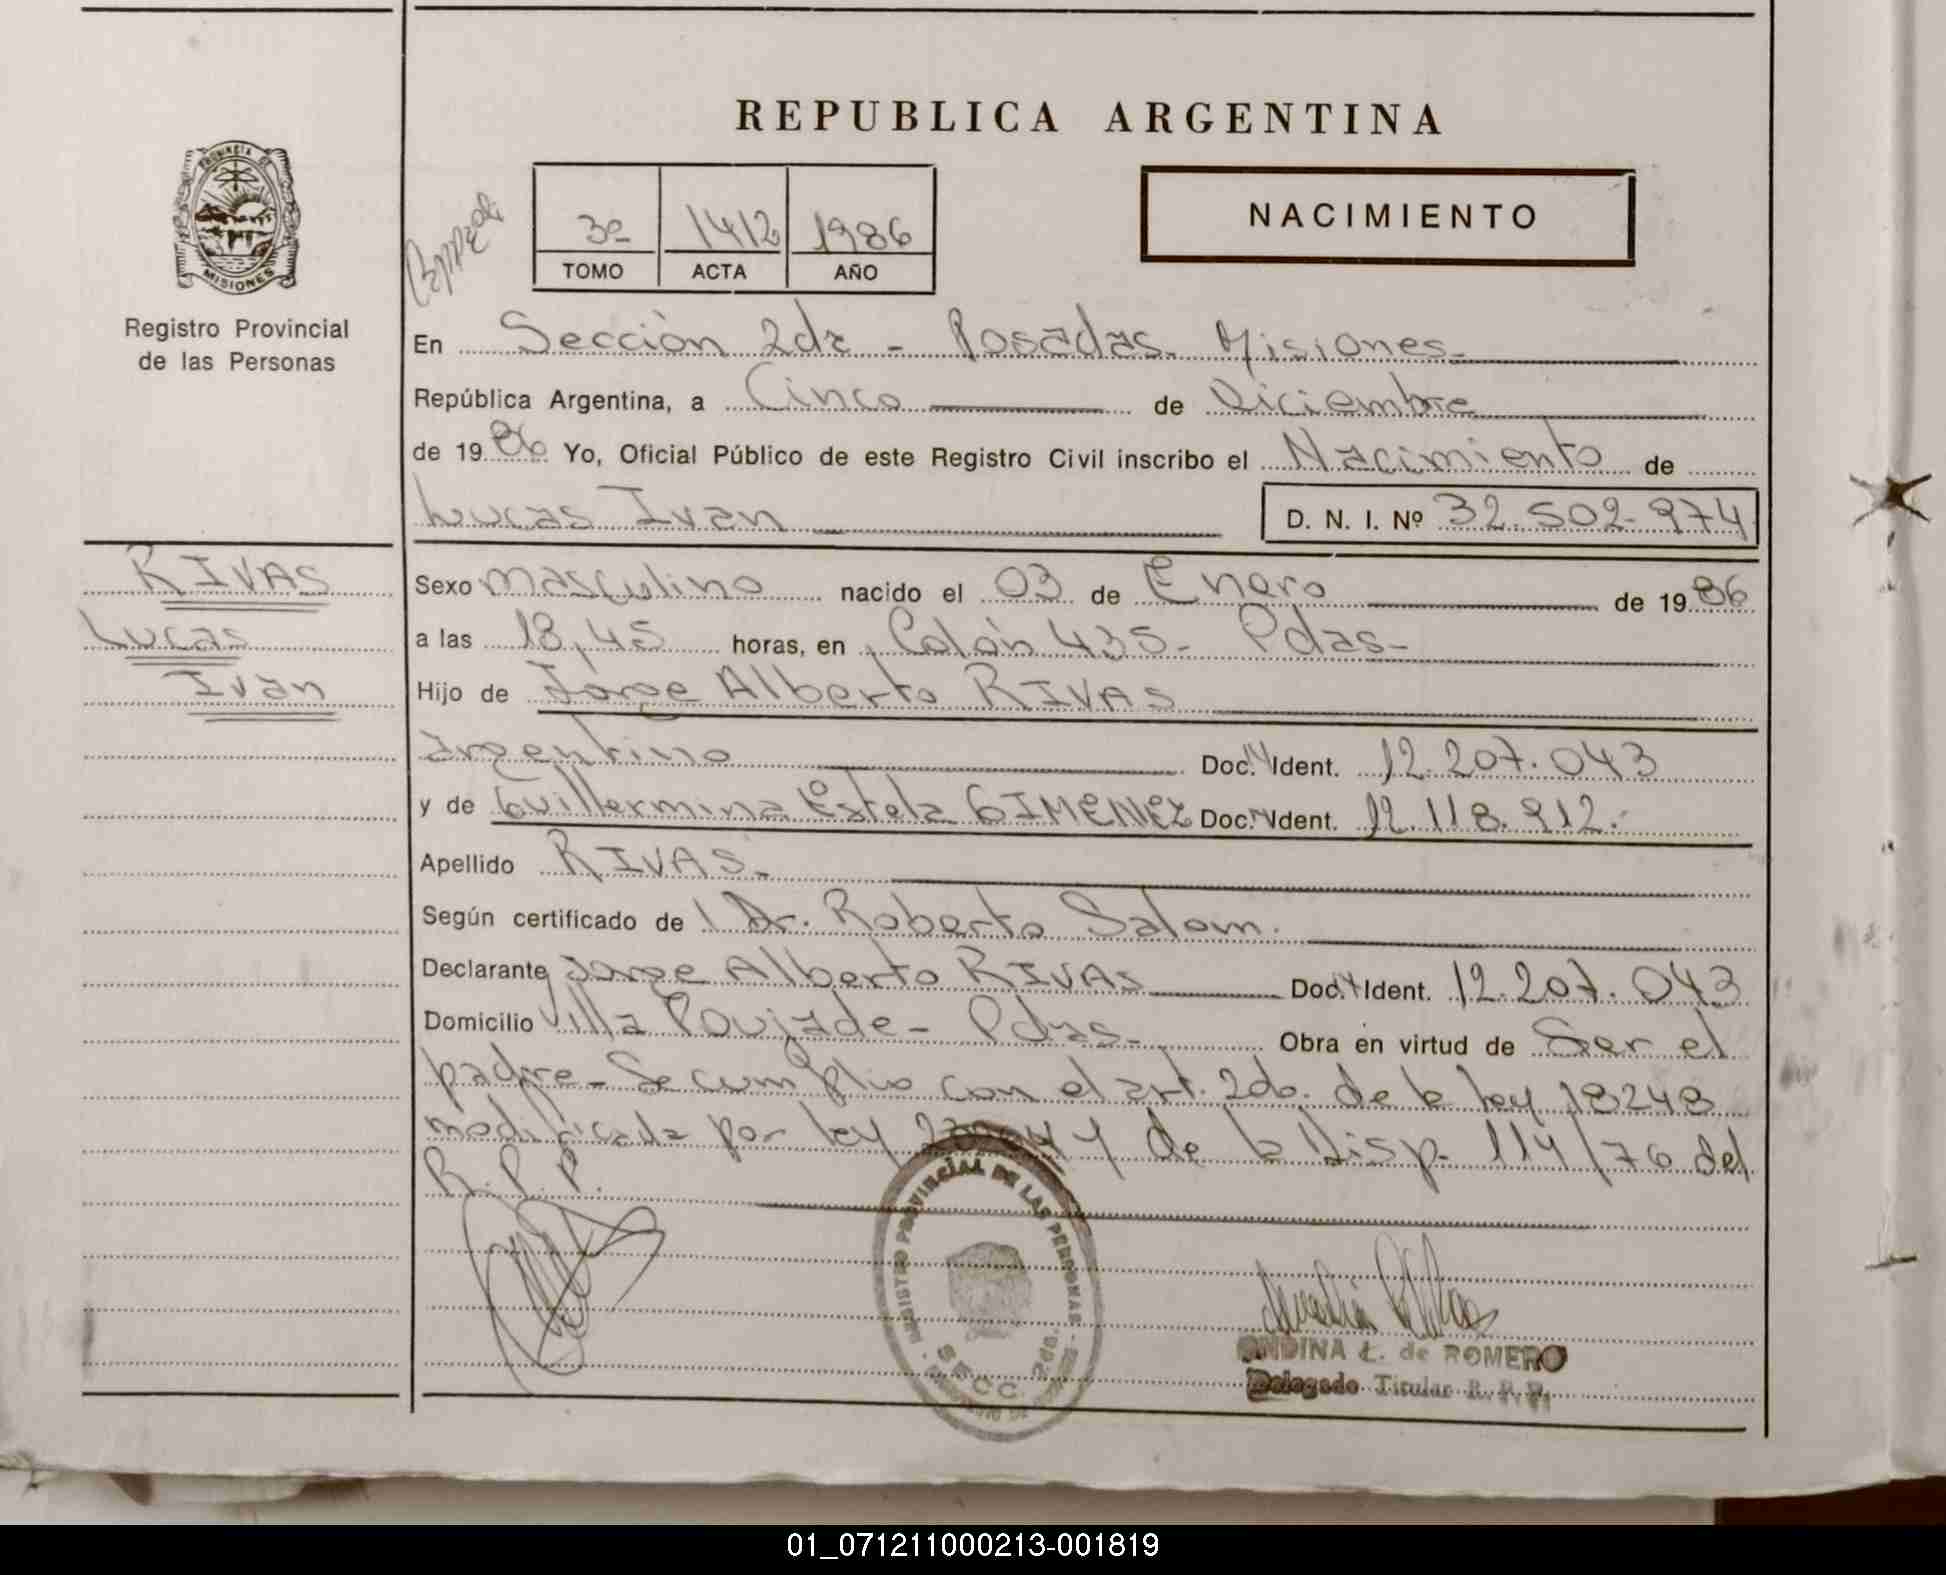 REPUBLICA ARGENTINA
PROVINCIA DE
MISIONES
Registro Provincial
de las Personas
3º 1412 1986
TOMO ACTA AÑO
NACIMIENTO
En Sección 2da - Posadas. Misiones.
República Argentina, a Cinco de Diciembre
de 1986 Yo, Oficial Público de este Registro Civil inscribo el Nacimiento de
Lucas Ivan D. N. I. Nº 32.502.974
RIVAS
Lucas
Ivan
Sexo masculino nacido el 03 de Enero de 1986
a las 18,45 horas, en Colón 435- Pdas-
Hijo de Jorge Alberto RIVAS
argentino Doc. Ident. 12.207.043
y de Guillermina Estela GIMENEZ Doc. Ident. 12.118.912.-
Apellido RIVAS.-
Según certificado de Dr. Roberto Salom.
Declarante Jorge Alberto RIVAS Doc. Ident. 12.207.043
Domicilio Villa Poujade- Pdas- Obra en virtud de Ser el
padre- Se cumplio con el art. 2do. de la ley 18248
modificada por ley y de la Disp. 114/76 del
R.P.P.
REGISTRO PROVINCIAL DE LAS PERSONAS
SECC. 2da.
ONDINA L. de ROMERO
Delegado Titular R. P. P.
01_071211000213-001819